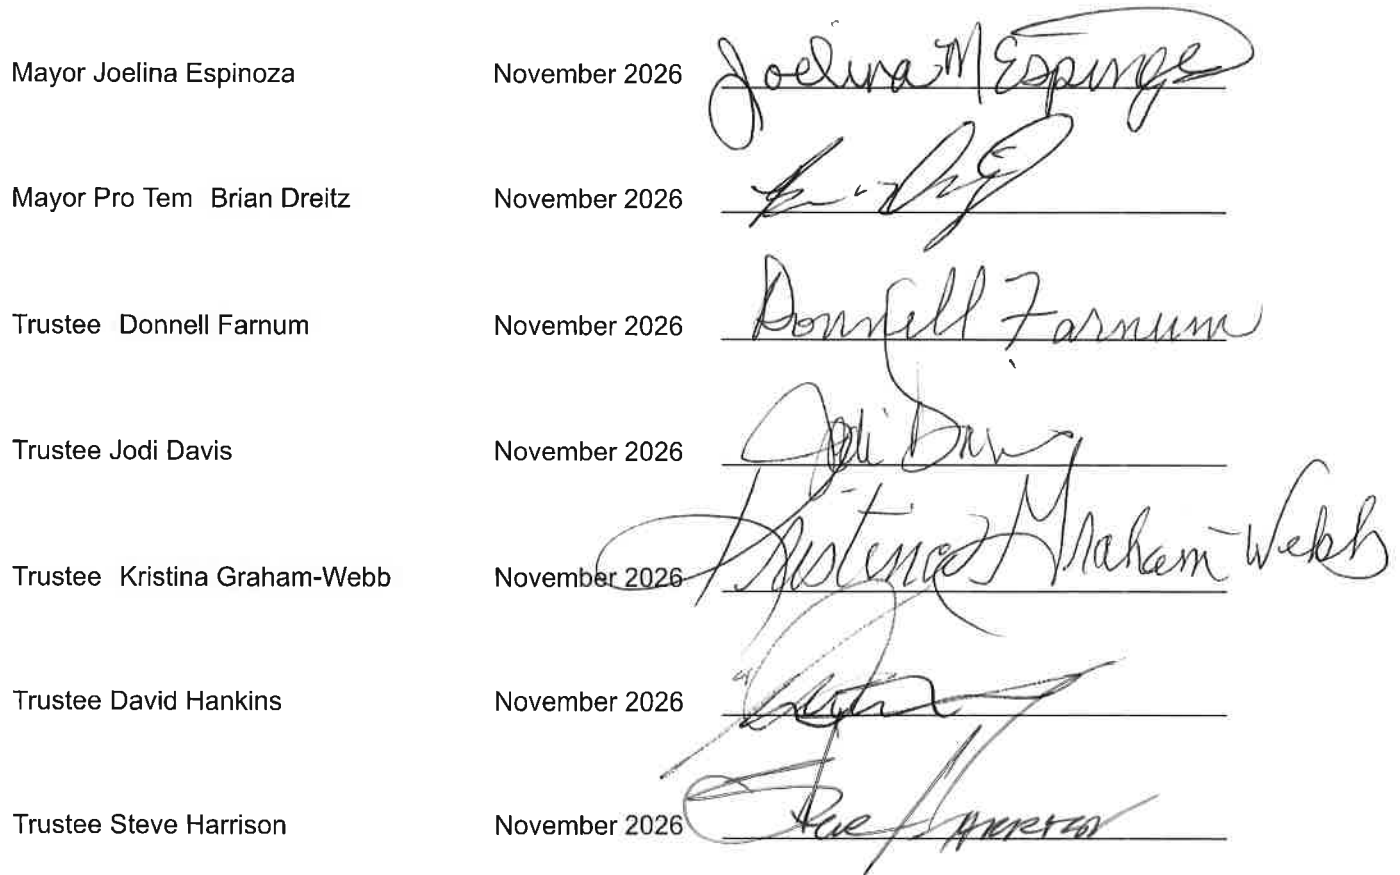 Mayor Joelina Espinoza November 2026 Joelina M Espinoza
Mayor Pro Tem Brian Dreitz November 2026
Trustee Donnell Farnum November 2026 Donnell Farnum
Trustee Jodi Davis November 2026 Jodi Davis
Trustee Kristina Graham-Webb November 2026 Kristina Graham-Webb
Trustee David Hankins November 2026
Trustee Steve Harrison November 2026 Steve Harrison